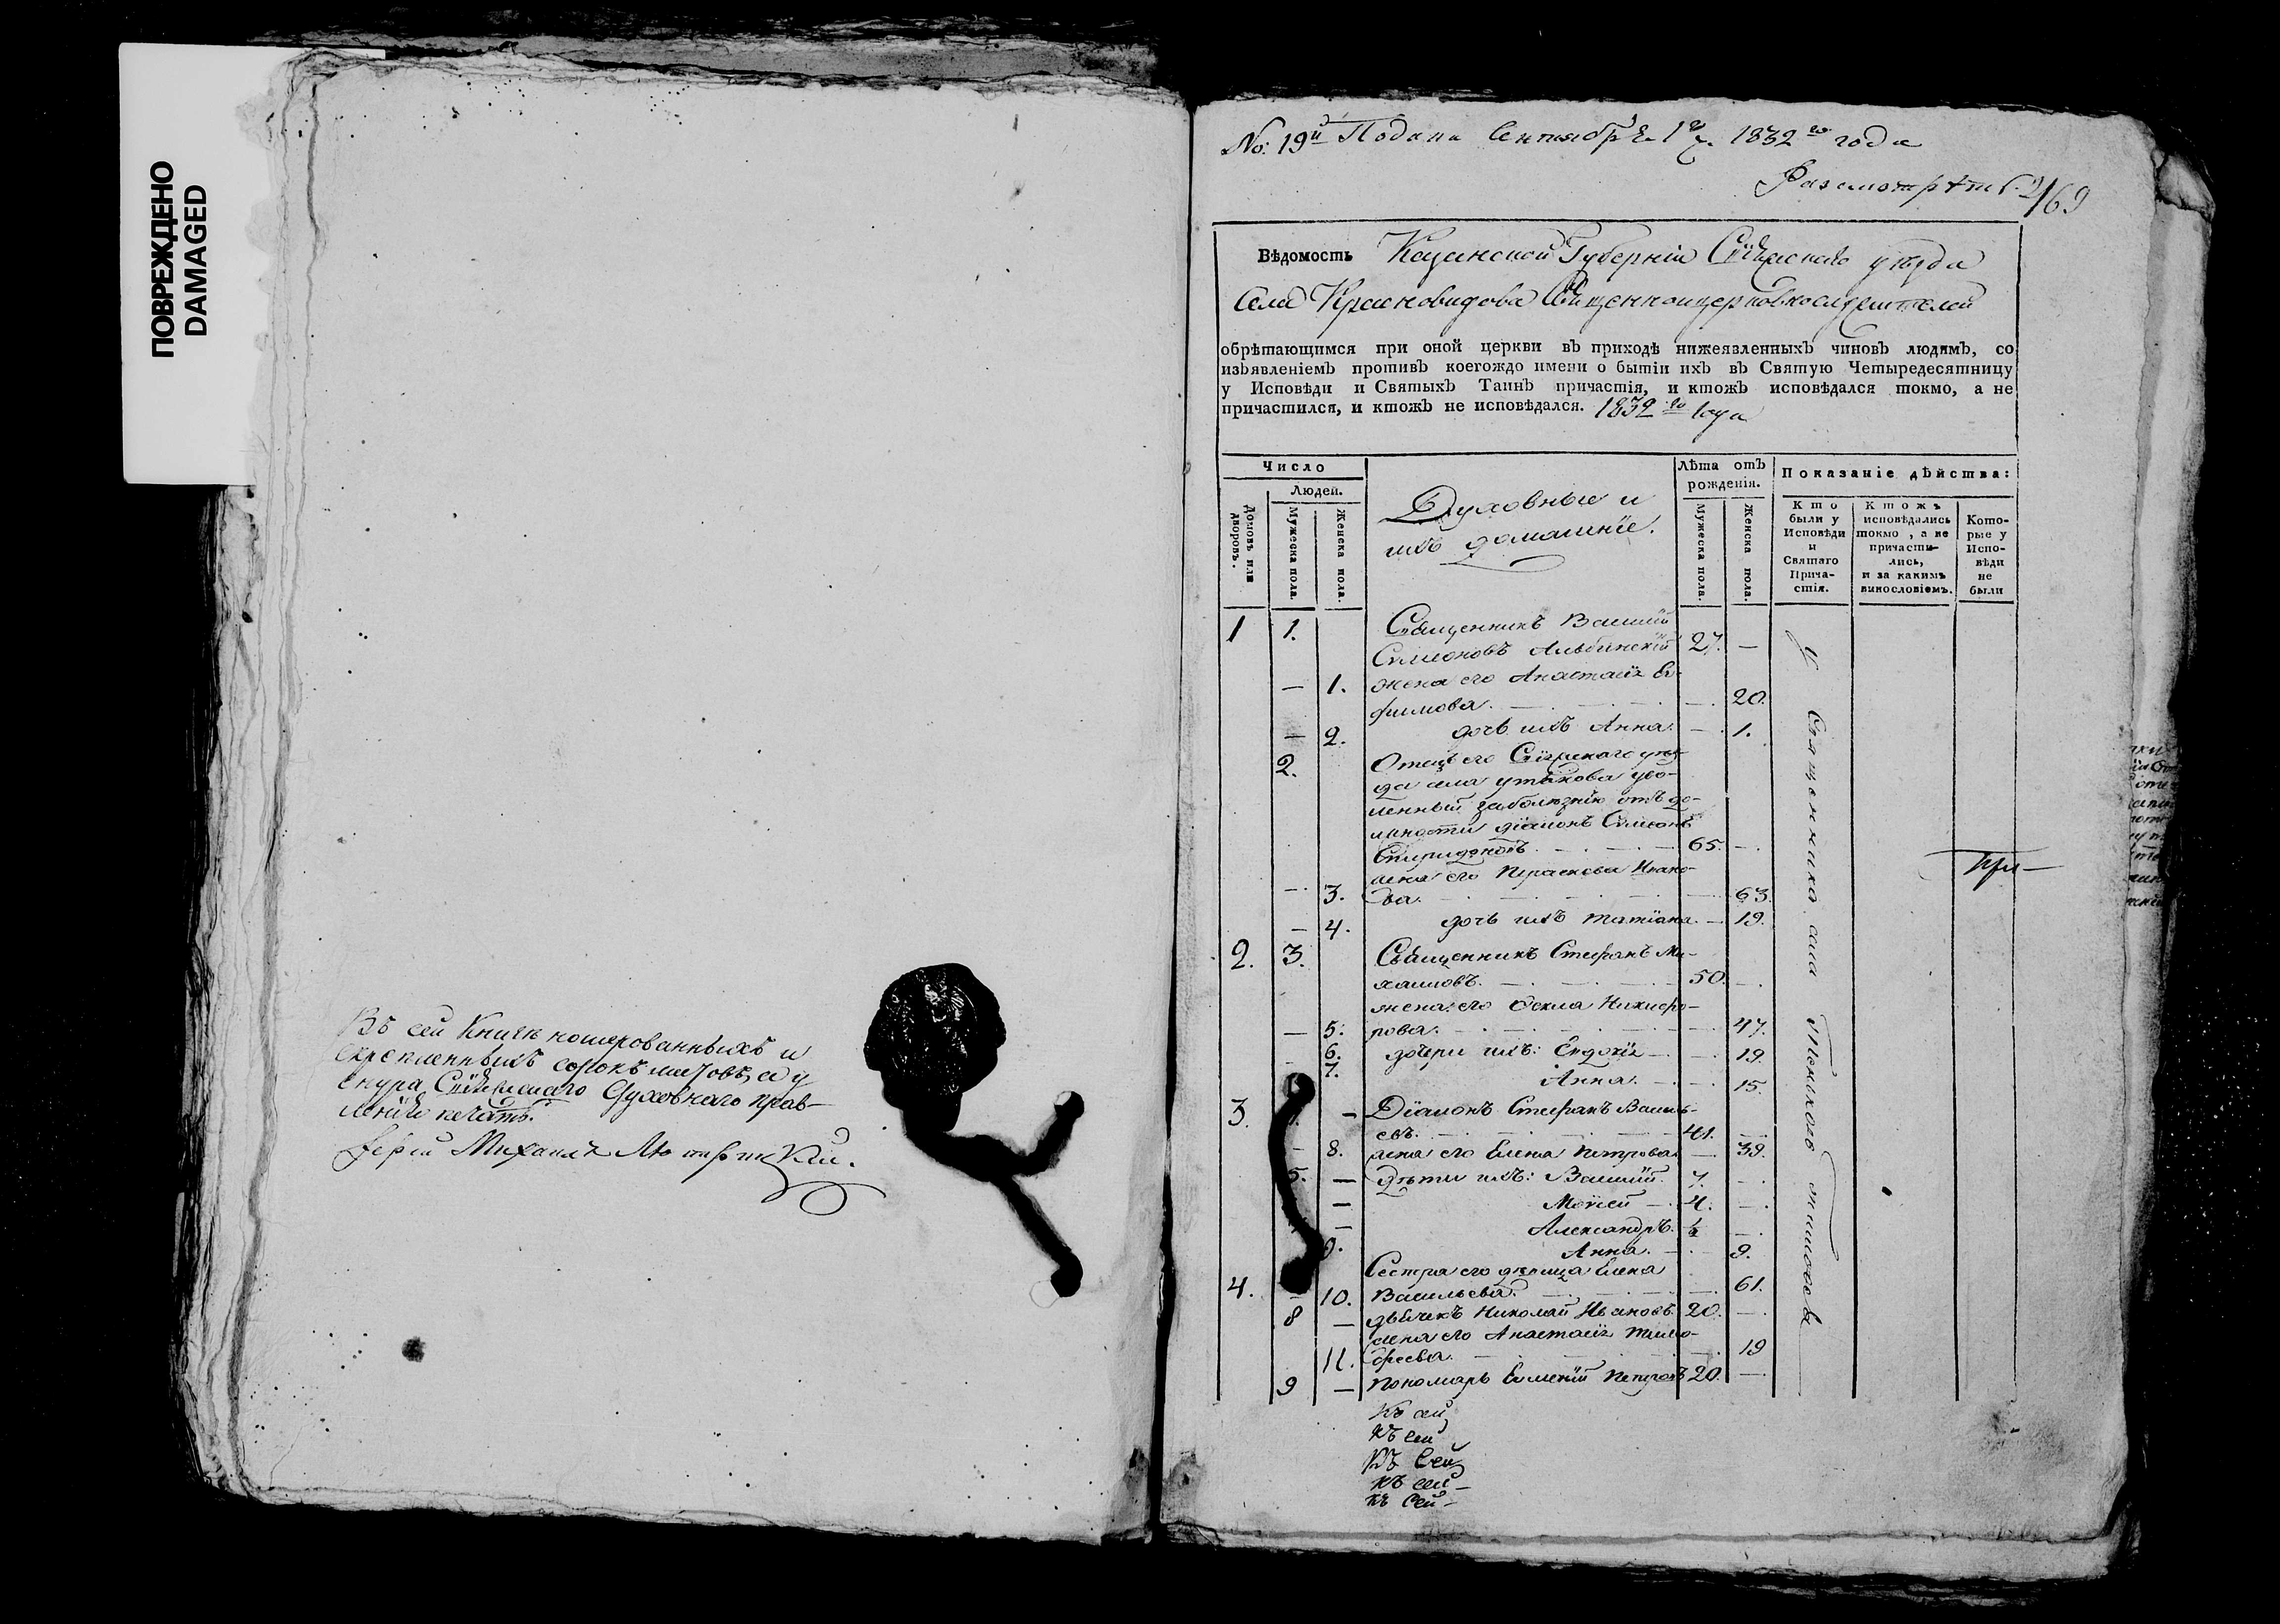 ПОВРЕЖДЕНО
DAMAGED
Въ сей Книгѣ номерованныхъ и
скрепленныхъ сорокъ листовъ, а у
снура Свіяжскаго Духовнаго прав-
ленія печать.
Іерей Михаилъ
No: 19й Подана Сентября 1832го года
169
Вѣдомость Казанской Губерніи Свіяжскаго уѣзда
Села Красновидова Священноцерковнослужителей
обрѣтающимся при оной церкви въ приходѣ нижеявленныхъ чиновъ людямъ, со
изъявленіемъ противъ коегождо имени о бытіи ихъ въ Святую Четыредесятницу
у Исповѣди и Святыхъ Таинъ причастія, и ктожъ исповѣдался токмо, а не
причастился, и ктожъ не исповѣдался. 1832го Года
Число
Людей.
Домовъ или дворовъ.
Мужеска пола.
Женска пола.
Духовные и
ихъ домашніе.
Лѣта отъ
рожденія.
Мужеска пола.
Женска пола.
Показаніе дѣйства:
Кто
были у
Исповѣди
и
Святаго
Прича-
стія.
Ктожъ
исповѣдались
токмо, а не
причасти-
лись,
и за какимъ
винословіемъ.
Кото-
рые у
Испо-
вѣди
не
были
1 1. Священникъ Василій
Симеоновъ Альбинскій 27. —
— 1. жена его Анастасія Ев-
фимова. — 20.
— 2. дочь ихъ Анна. — 1.
2. Отецъ его Свіяжскаго уѣз-
да села Утякова уво-
ленный за болезнію отъ до-
лжности діаконъ Симеонъ
Спиридоновъ 65. —
жена его Параскева Ивано-
— 3. ва. — 63.
— 4. дочь ихъ Татіана. — 19.
2. 3. Священникъ Стефанъ Ми-
хаиловъ. 50. —
жена его Фекла Никифо-
— 5. рова. — 47.
6. дочери ихъ: Евдокія — 19.
7. Анна. — 15.
3. — Діаконъ Стефанъ Василь-
евъ. 41. —
— 8. жена его Елена Петрова — 39.
5. — Дѣти ихъ: Василій 7. —
— Моисей — 4. —
— Александръ.
9. Анна. — 9.
Сестра его дѣвица Елена
4. 10. Васильева. — 61.
8 — дьячекъ Николай Ивановъ. 20. —
жена его Анастасія Тимо-
11. феева. — 19
9 — Пономарь Евгеній Петровъ 20. —
у Священника села Тенькова
Къ сей
Къ сей
Къ Сей
Къ сей —
Къ Сей —